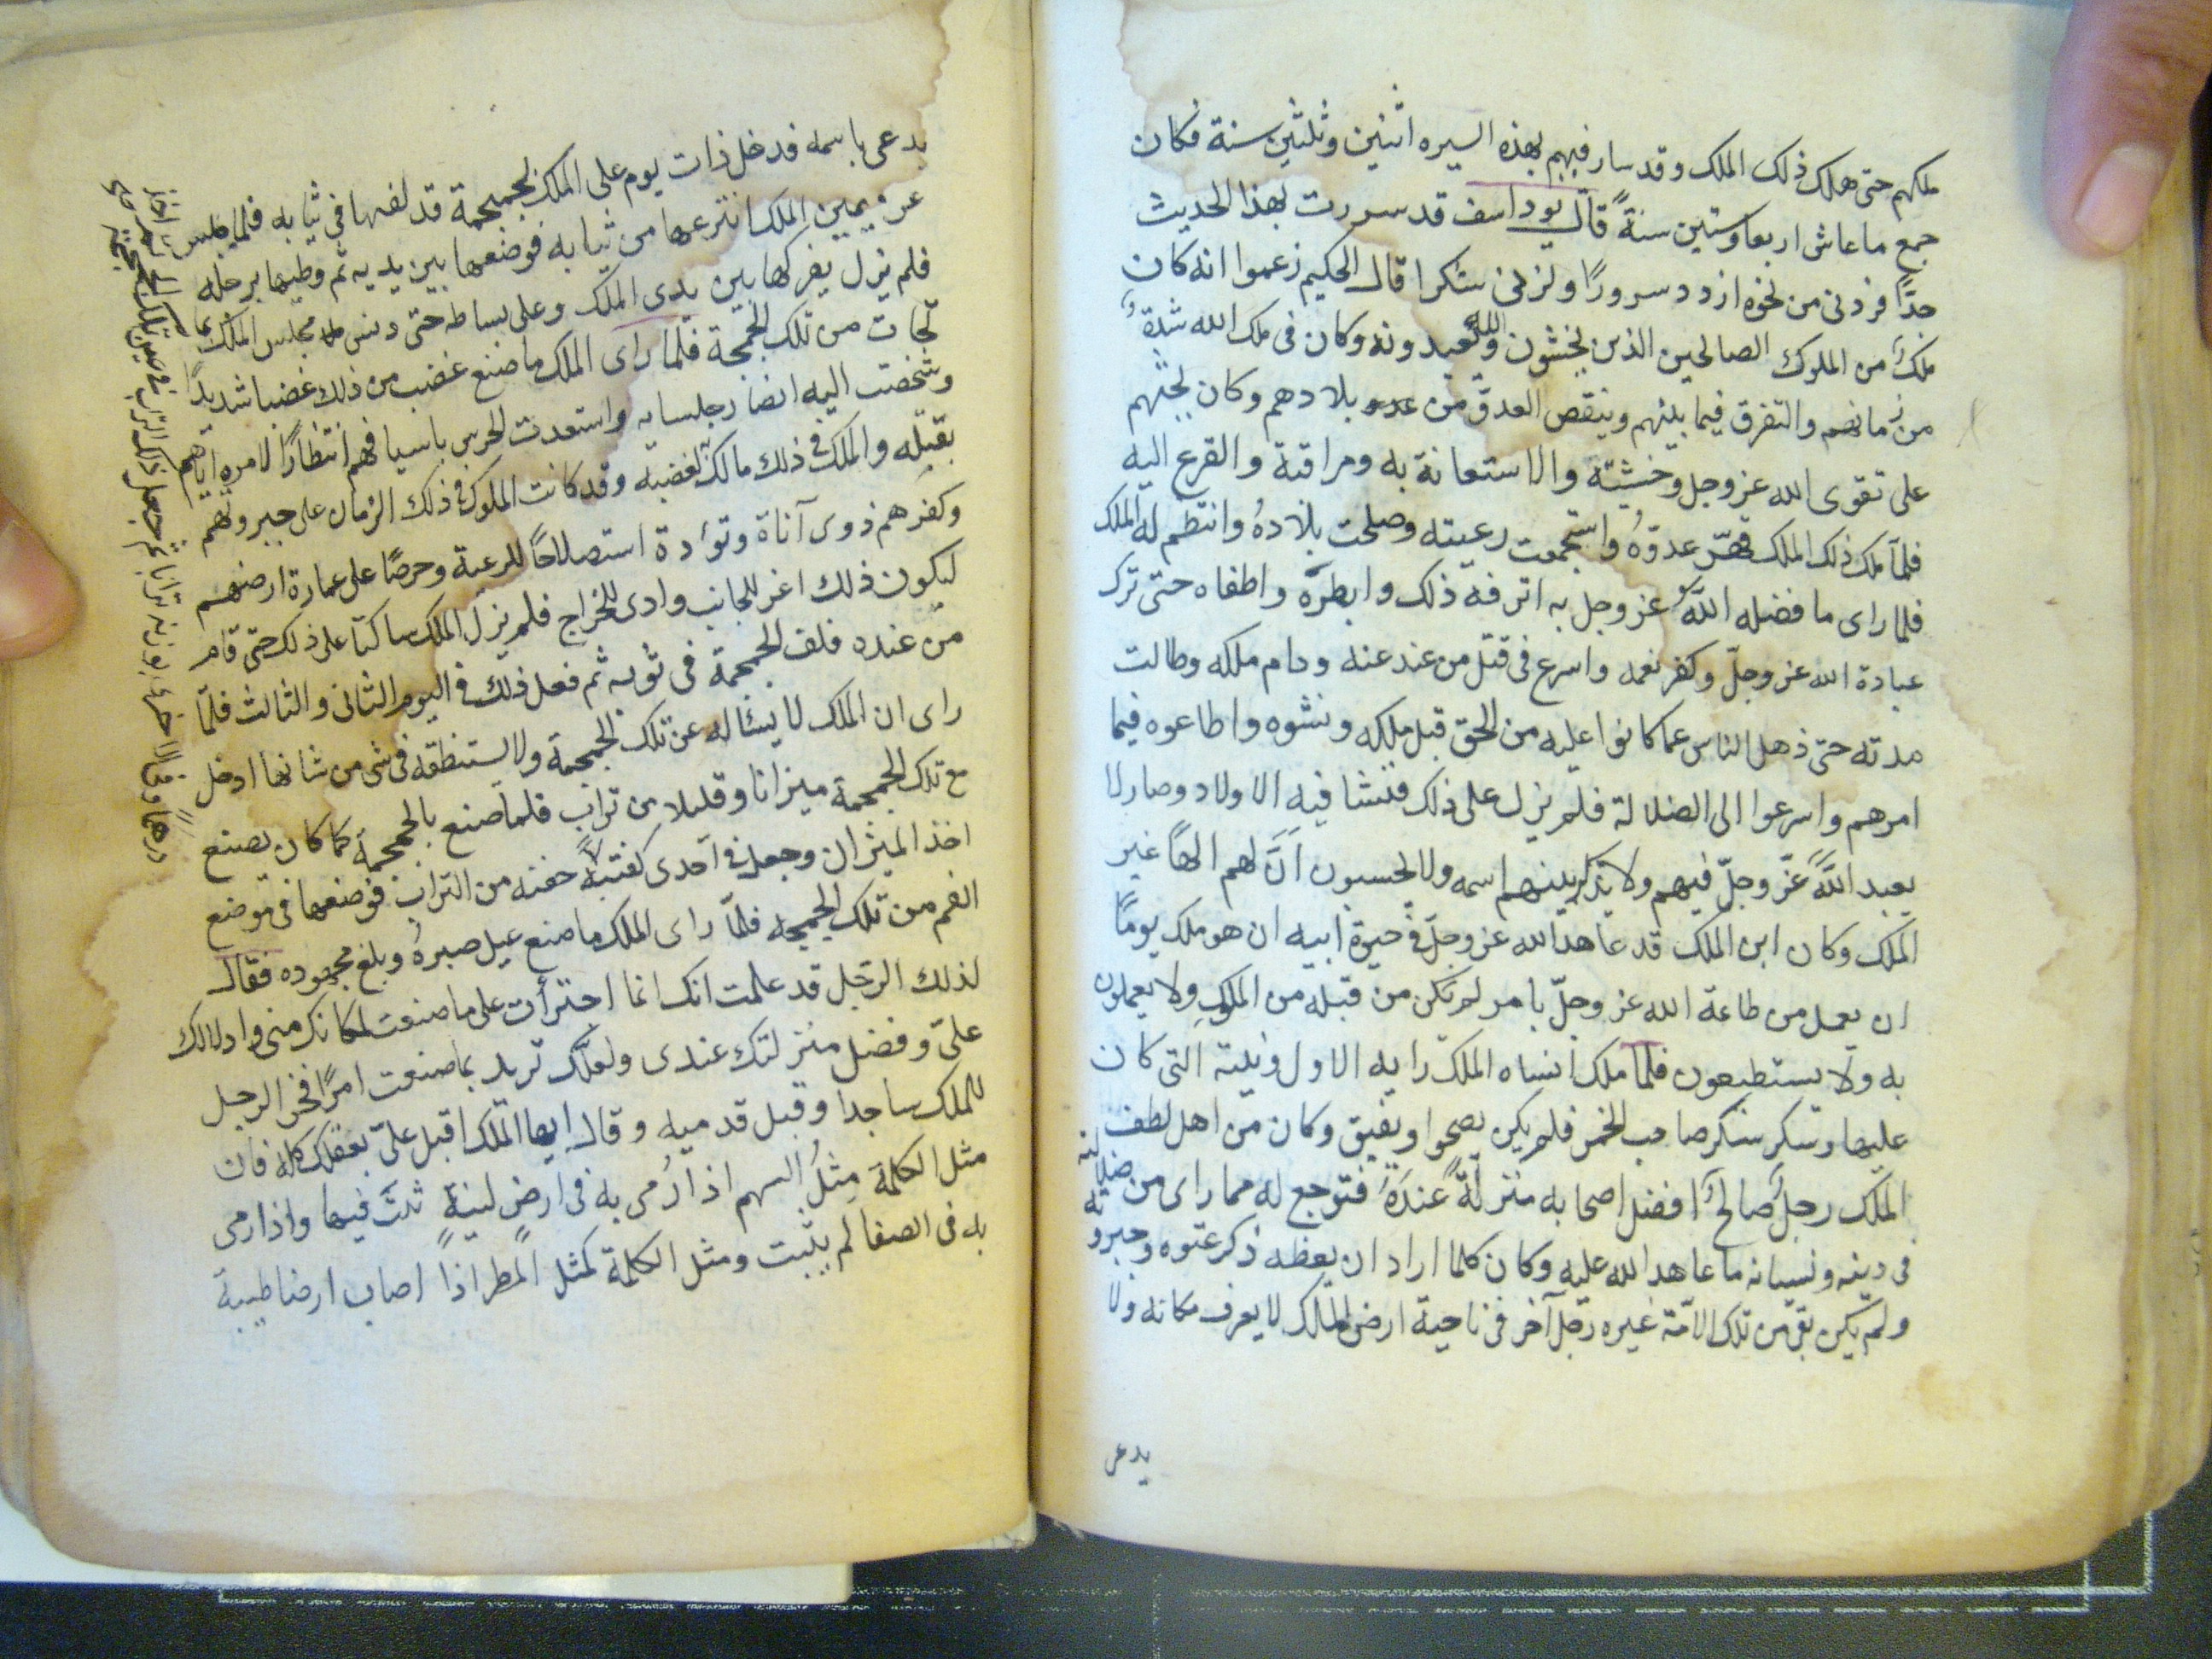 ملكهم حتى هلك ذلك الملك وقد سار فيهم بهذه السيره اثنين وثلثين سنة فكان
جمع ما عاش اربعا وستين سنةً قال يوداسف قد سررت بهذا الحديث
جدًّا فزدنى من نحوه ازدد سرورًا ولربى شكرا قال الحكيم زعموا انه كان
ملكٌ من الملوك الصالحين الذين يخشون الله ويعبدونه وكان فى ملك الله شدةٌ
من زمانهم والتفرق فيما بينهم وينقص العدوّ من بلادهم وكان يحثهم
على تقوى الله عز وجل وخشيته والاستعانة به ومراقبة والفزع اليه
فلمّا ملك ذلك الملك قهر عدوّهُ واستجمعت رعيته وصلحت بلادهُ وانتظم له الملك
فلما راى ما فضله اللهُ عز وجل به اترفه ذلك وابطرَه واطغاه حتى ترك
عبادة الله عز وجلّ وكفر نعمه واسرع فى قتل من عند عنه ودام ملكه وطالت
مدته حتى ذهل الناس عما كانوا عليه من الحق قبل ملكه ونسوه واطاعوه فيما
امرهم واسرعوا الى الضلالة فلم يزل على ذلك فنشا فيه الاولاد وصار لا
يعبد اللهُ عزّ وجلّ فيهم ولا يذكر بينهم اسمه ولا يحسبون انَّ لهم الهًا غير
الملك وكان ابن الملك قد عاهد الله عز وجلّ فى حيوة ابيه ان هو ملك يومًا
ان يعمل من طاعة الله عز وجلّ بامر لم تكن من قبله من الملوك ولا يعملون
به ولا يستطيعون فلما ملك انساه الملك رايه الاول ونيته التى كان
عليها وسكر سكر صاحب الخمر فلم يكن يصحوا ويفيق وكان من اهل لطف
الملك رجلٌ صالحٌ افضل اصحابه منزلةً عندَهُ فتوجع له مما راى من ضلالته
فى دينه ونسيانه ما عاهد الله عليه وكان كلما اراد ان يعظه ذكر عتوه وجبروته
ولم يكن بقى من تلك الامّة غيره ورجل آخر فى ناحية ارض الملك لا يعرف مكانه ولا
يدعى
يدعى باسمه فدخل ذات يوم على الملك بجمجمة قد لفها فى ثيابه فلما جلس
عن يمين الملك انتزعها من ثيابه فوضعها بين يديه ثم وطيها برجله
فلم يزل يفركها بين يدى الملك وعلى بساطه حتى دنس مجلس الملك بما
تحات من تلك الجمجمة فلما راى الملك ما صنع غضب من ذلك غضبا شديدًا
وشخصت اليه ابصار جلسايه واستعدت الحرس باسيافهم انتظارًا لامره اياهم
بقتله والملك فى ذلك مالك لغضبه وقد كانت الملوك فى ذلك الزمان على جبروتهم
وكفرهم ذوى آناة وتؤدة استصلاحًا للرعية وحرصًا على عمارة ارضهم
ليكون ذلك اغز للجانب وادى للخراج فلم يزل الملك ساكتا على ذلك حتى قام
من عنده فلف الجمجمة فى ثوبه ثم فعل ذلك فى اليوم الثانى والثالث فلمّا
راى ان الملك لا يسئاله عن تلك الجمجمة ولا يستنطقه فى شى من شانها ادخل
مع تلك الجمجمة ميزانا وقليلا من تراب فلما صنع بالجمجمة كما كان يصنع
اخذ الميزان وجعل فى احدى كفتيه
درهمًا وفى الاخرى بوزنه ترابا ثم جعل ذلك التراب فى عين تلك الجمجمة
ثم اخذ
حفنه من التراب فوضعها فى موضع
الفم من تلك الجمجمه فلمّا راى الملك ما صنع عيل صبرهُ وبلغ مجهوده فقال
لذلك الرجل قد علمت انك انما اجترأت على ما صنعت لمكانك منى وادلالك
علىّ وفضل منزلتك عندى ولعلّك تريد بما صنعت امرًا فخر الرجل
للملك ساجدا وقبل قدميه وقال ايها الملك اقبل علىّ بعقلك كله فان
مثل الكلمة مثلُ السهم اذا رُمى به فى ارض لينةٍ ثبت فيها واذا رمى
به فى الصفا لم يثبت ومثل الكلمة كمثل المطر اذا اصاب ارضا طيبة